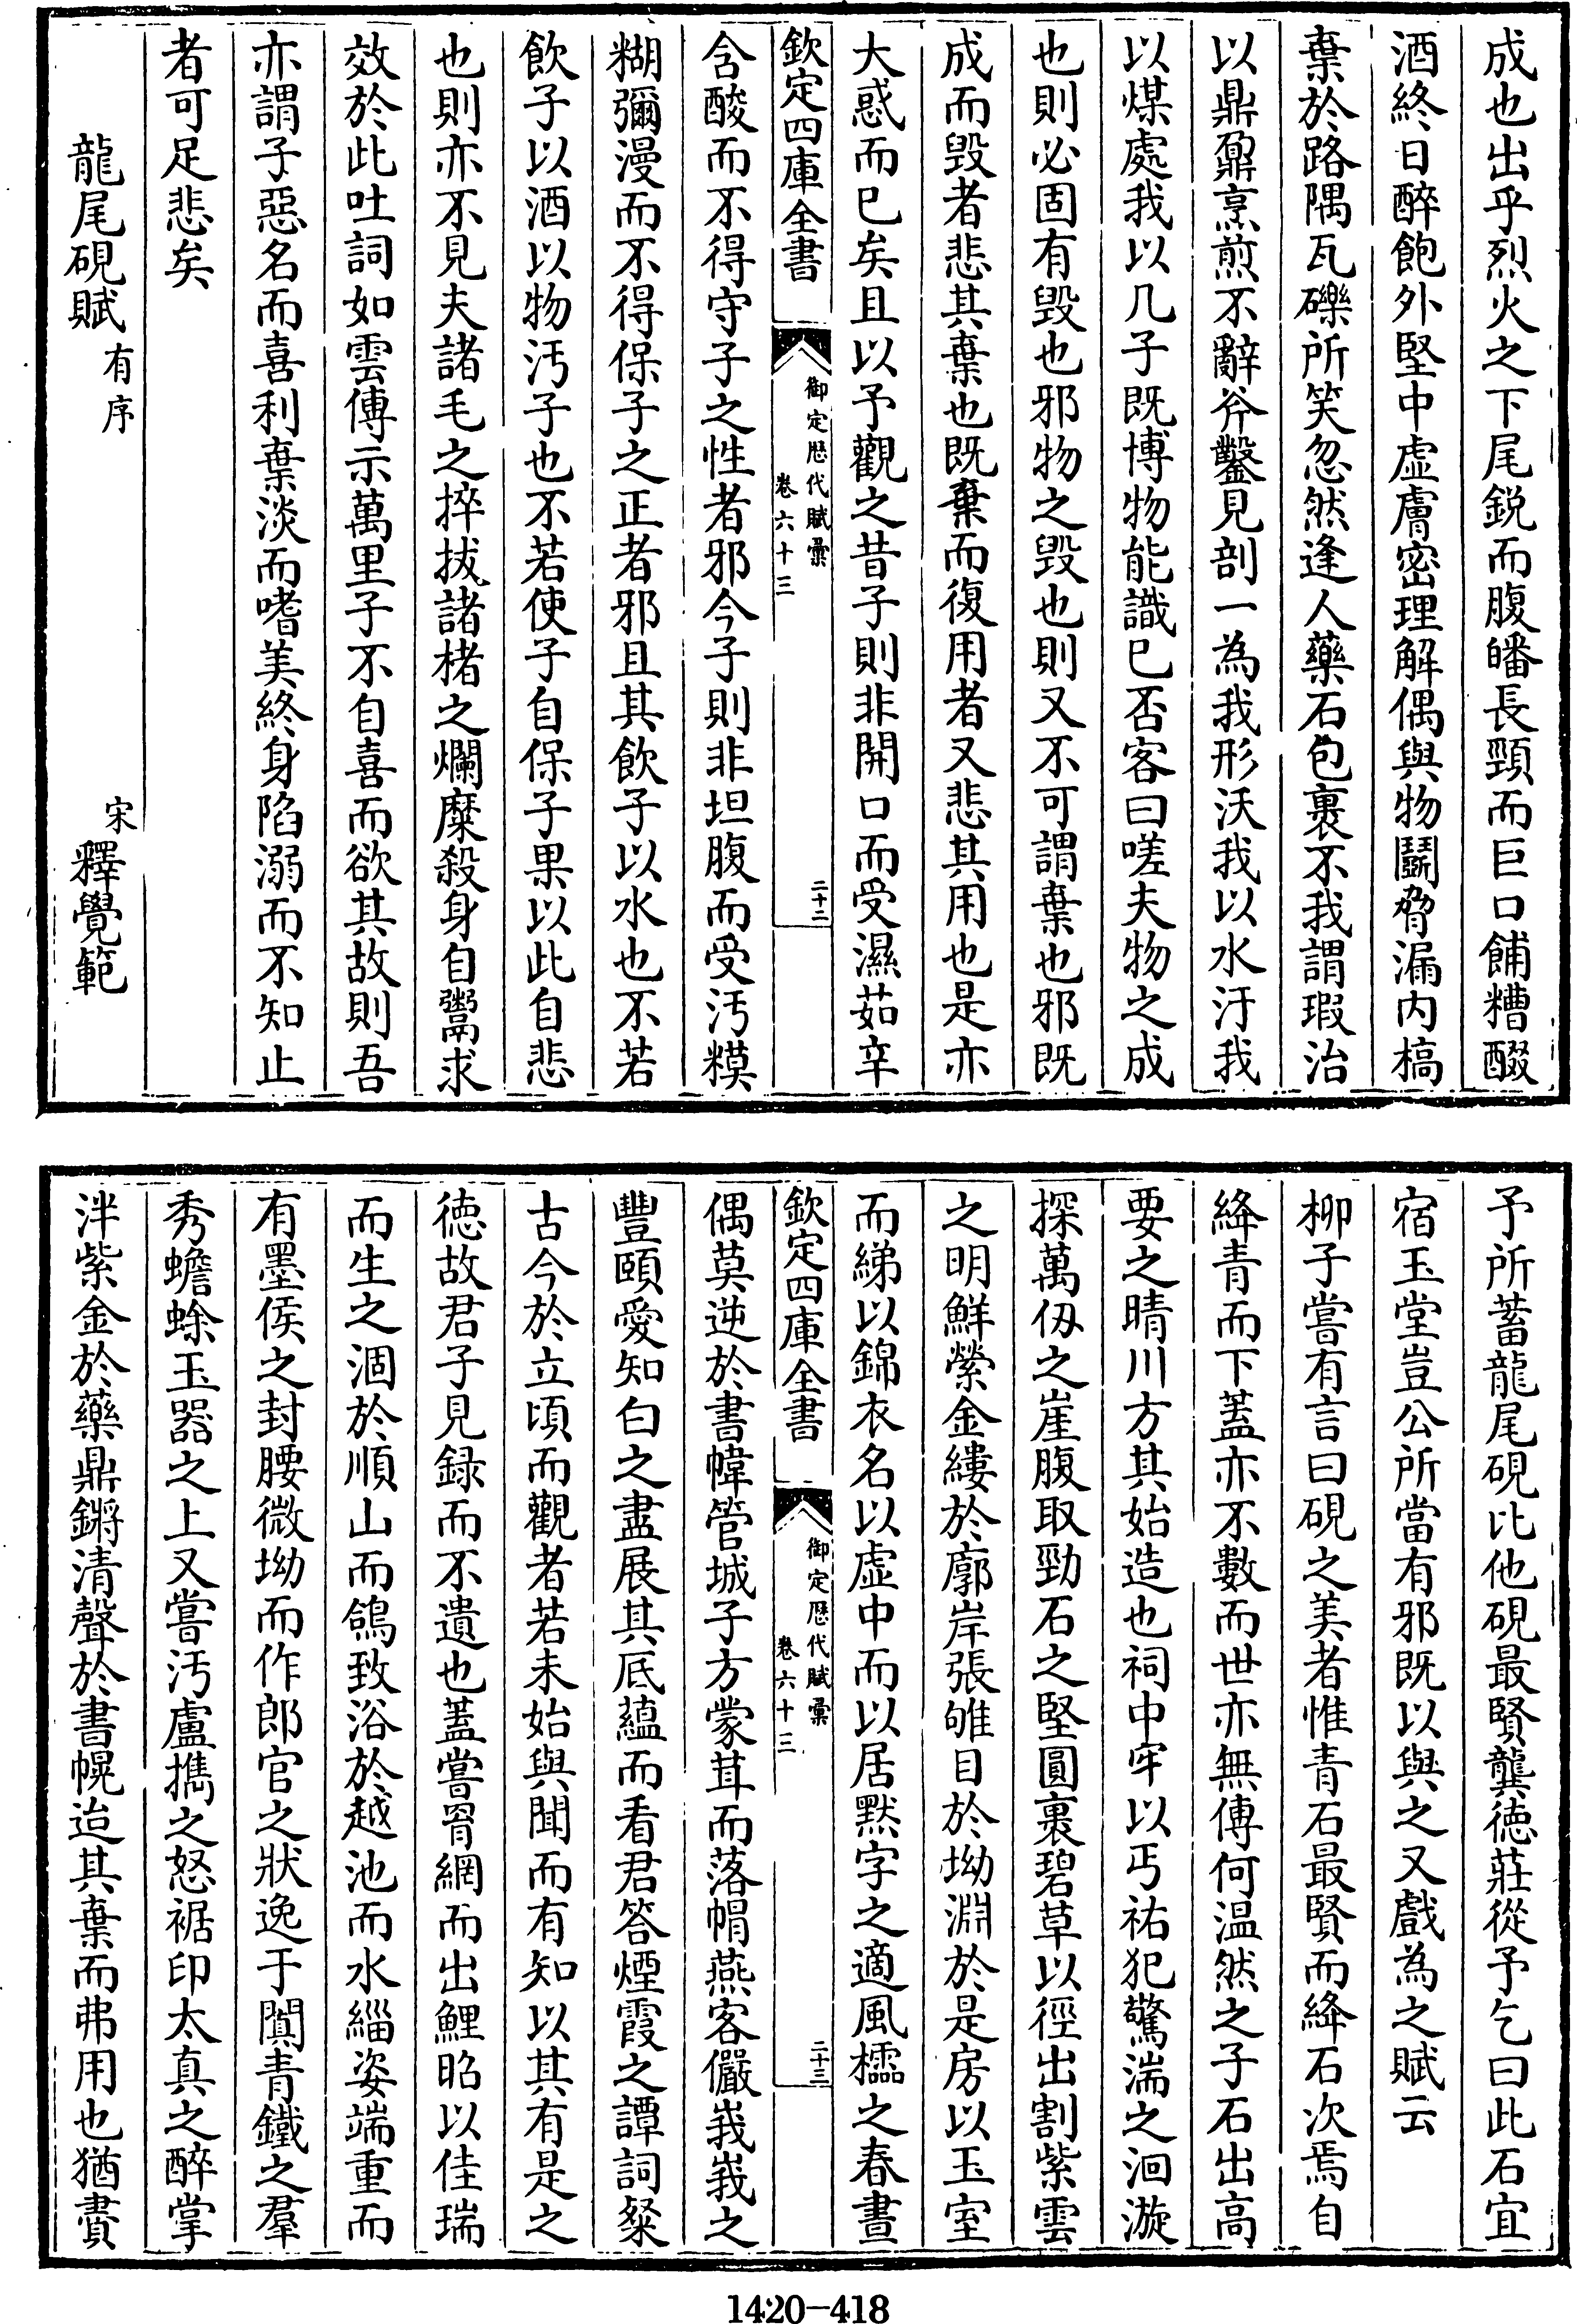 成也出乎烈火之下尾鋭而腹皤長頸而巨口餔糟醊
酒終日醉飽外堅中虛膚密理解偶與物鬭脅漏内槁
棄於路隅瓦礫所笑忽然逢人藥石包裹不我謂瑕治
以鼎鼐烹煎不辭斧鑿見剖一為我形沃我以水汙我
以煤處我以几子既博物能識已否客曰嗟夫物之成
也則必固有毀也邪物之毀也則又不可謂棄也邪既
成而毀者悲其棄也既棄而復用者又悲其用也是亦
大惑而已矣且以予觀之昔子則非開口而受濕茹辛
欽定四庫全書
御定歴代賦彚
卷六十三
二十二
含酸而不得守子之性者邪今子則非坦腹而受汚糢
糊彌漫而不得保子之正者邪且其飲子以水也不若
飲子以酒以物汚子也不若使子自保子果以此自悲
也則亦不見夫諸毛之捽拔諸楮之爛糜殺身自鬻求
效於此吐詞如雲傳示萬里子不自喜而欲其故則吾
亦謂子惡名而喜利棄淡而嗜美終身陷溺而不知止
者可足悲矣
龍尾硯賦有序
宋釋覺範
予所蓄龍尾硯比他硯最賢龔德莊從予乞曰此石宜
宿玉堂豈公所當有邪既以與之又戲為之賦云
柳子嘗有言曰硯之美者惟青石最賢而絳石次焉自
絳青而下蓋亦不數而世亦無傳何温然之子石出高
要之晴川方其始造也祠中牢以丐祐犯驚湍之洄漩
探萬仭之崖腹取勁石之堅圓裹碧草以徑出割紫雲
之明鮮縈金縷於廓岸張雊目於坳淵於是房以玉室
而綈以錦衣名以虛中而以居默字之適風櫺之春晝
欽定四庫全書
御定歴代賦彚
卷六十三
二十三
偶莫逆於書幃管城子方蒙茸而落帽燕客儼峩峩之
豐頤愛知白之盡展其底蘊而看君答煙霞之譚詞粲
古今於立頃而觀者若未始與聞而有知以其有是之
德故君子見録而不遺也蓋嘗罥網而出鯉昭以佳瑞
而生之涸於順山而鴿致浴於越池而水緇姿端重而
有墨侯之封腰微坳而作郎官之狀逸于闐青鐵之羣
秀蟾蜍玉器之上又嘗汚盧攜之怒裾印太真之醉掌
泮紫金於藥鼎鏘清聲於書幌迨其棄而弗用也猶賣
1420-418